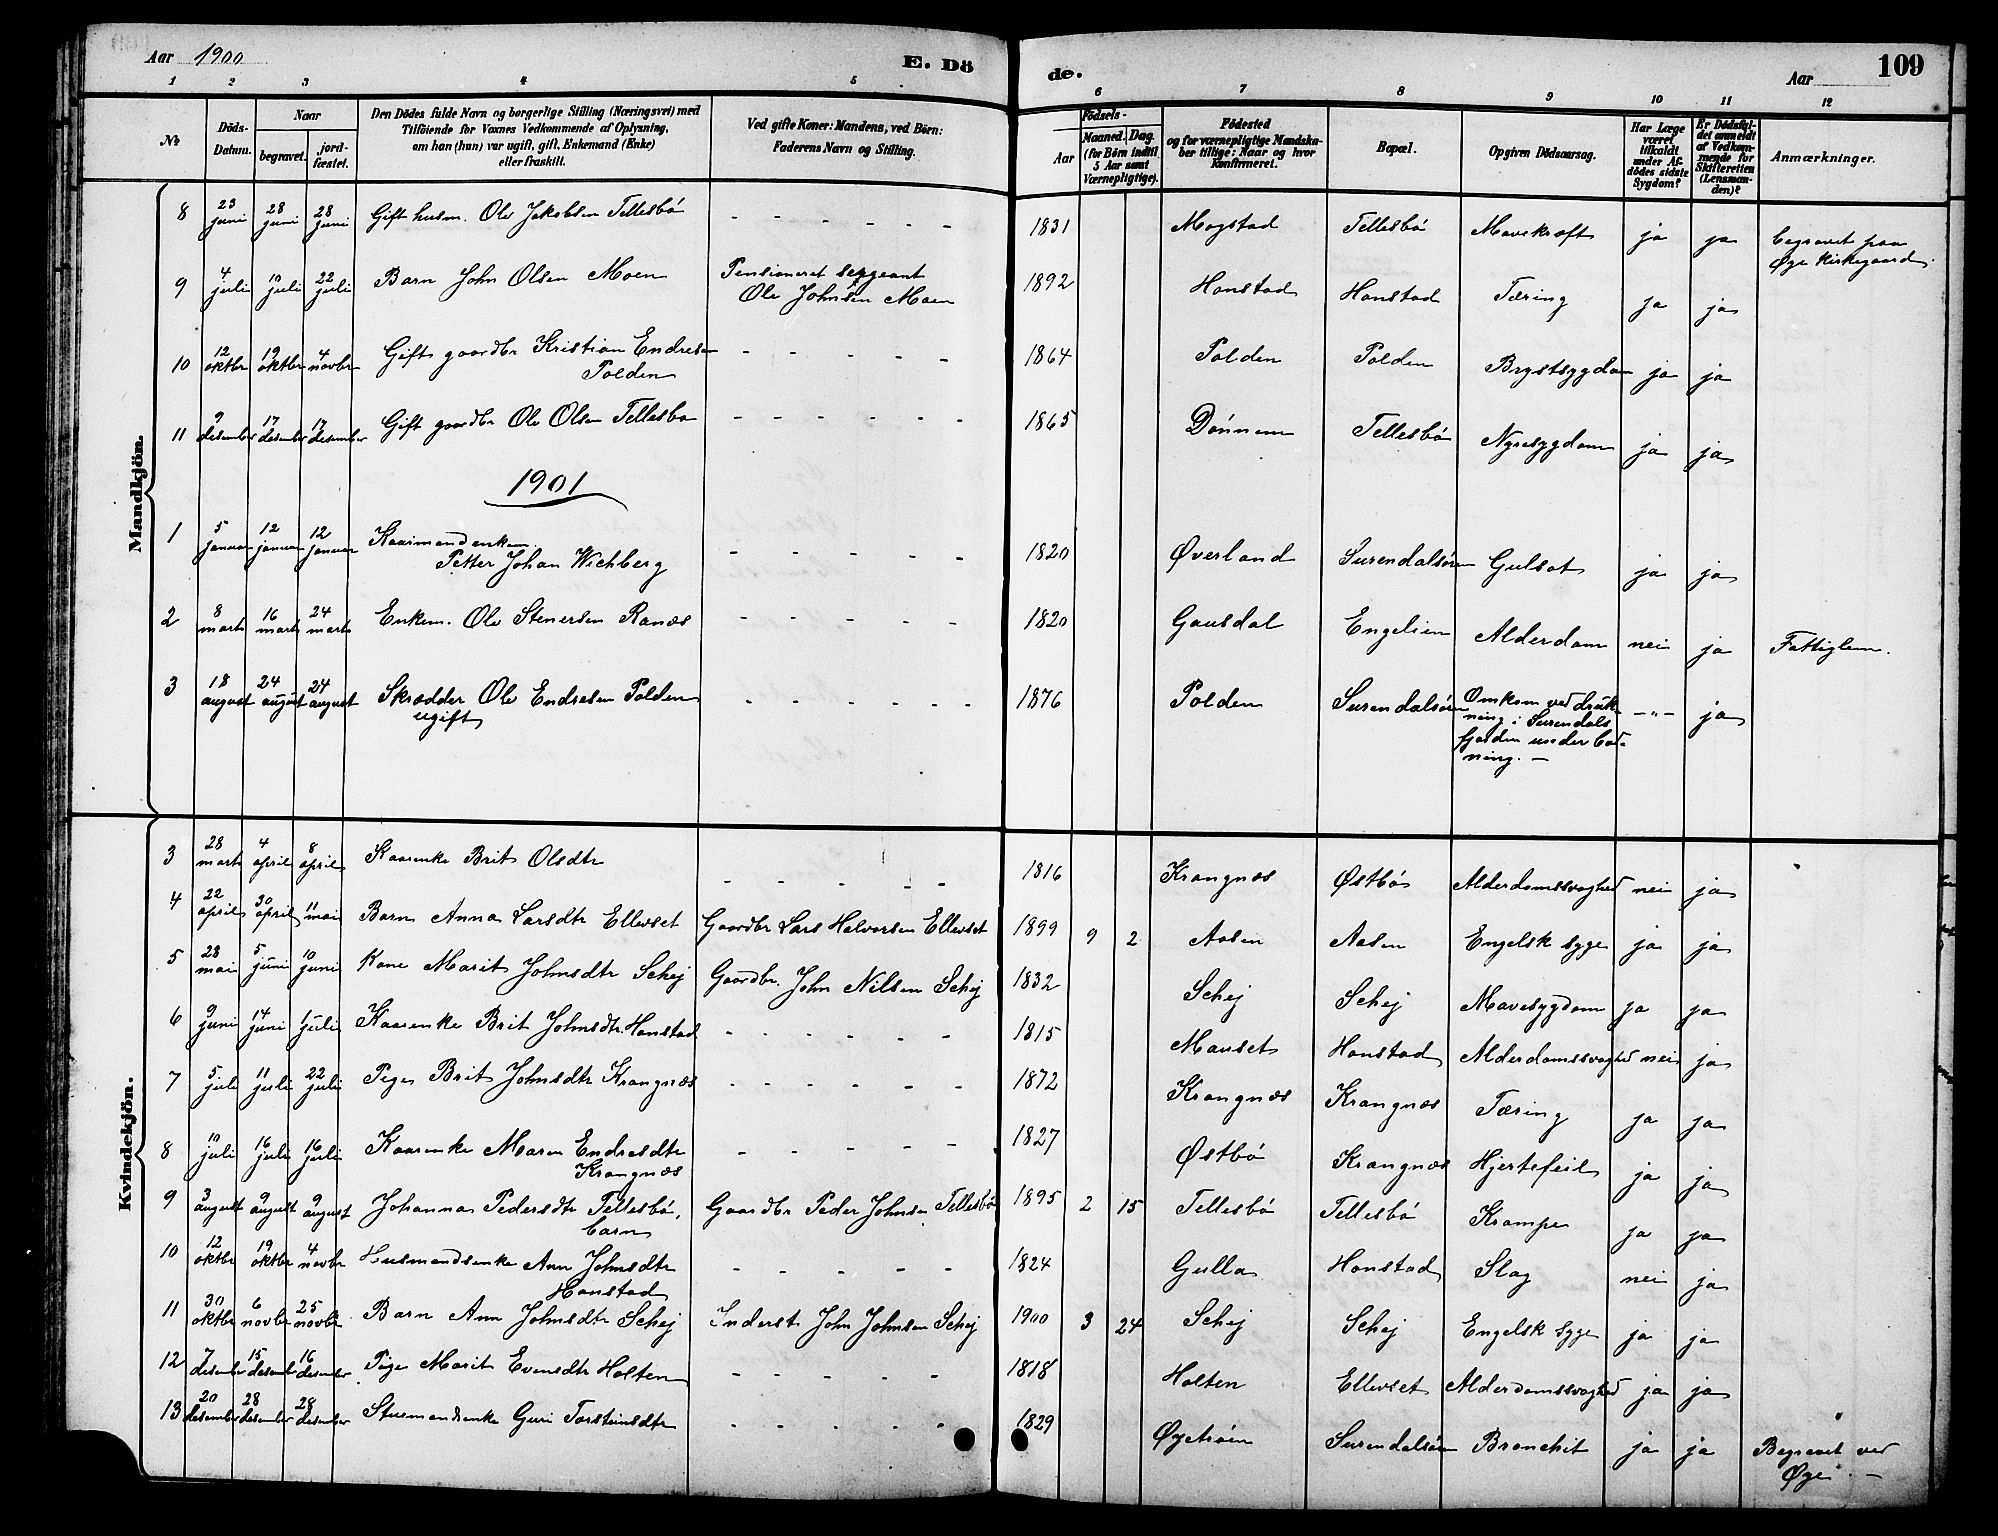 Aar 1900 E. Dö
de. Aar 109
1 2 3 4 5
6 7 8 9 10 11 12
No.
Döds-Datum.
Naar
begravet.
jordfæstet.
Den Dödes fulde Navn og borgerlige Stilling (Næringsvei) med
Tilföiende for Voxnes Vedkommende af Oplysning,
om han (hun) var ugift, gift, Enkemand (Enke)
eller fraskilt.
Ved gifte Koner: Mandens, ved Börn:
Faderens Navn og Stilling.
Födsels-
Aar
Maaned. Dag.
(for Börn indtil
5 Aar samt
Værnepligtige).
Födested
og for værnepligtige Mandska-
ber tillige: Naar og hvor
Konfirmeret.
Bopæl.
Opgiven Dödsaarsag.
Har Læge
været
tilkaldt
under Af-
dödes sidste
Sygdom?
Er Dödsfal-
det anmeldt
af Vedkom-
mende for
Skifteretten
(Lensman-
den)?
Anmærkninger.
Mandkjön.
8 23 juni 28 juni 28 juni Gift husm. Ole Jakobsen Tellesbö - - - - - 1831 Mogstad Tellesbö Mavekræft ja ja begravet paa
Øye kirkegaard.
9 4 juli 10 juli 22 juli Barn John Olsen Moen Pensioneret sergeant
Ole Johnsen Moen 1892 Honstad Honstad Tæring ja ja
10 12 oktbr 19 oktbr 4 novbr Gift gaardbr Kristian Endresen
Polden - - - - - 1864 Polden Polden Brystsygdom ja ja
11 9 desember 17 desember 17 desember Gift gaardbr Ole Olsen Tellesbø - - - - - 1865 Dønnem Tellesbø Nyresygdom ja ja
1901
1 5 januar 12 januar 12 januar Kaarmandenkem.
Petter Johan Wichberg - - - - - 1820 Øverland Surendalsøren Gulsot ja ja
2 8 marts 16 marts 24 marts Enkem. Ole Stenersen Ranæs - - - - - 1820 Gausdal Engelien Alderdom nei ja Fattiglem.
3 18 august 24 august 24 august Skrædder Ole Endresen Polden
ugift - - - - - 1876 Polden Surendalsøren Omkom ved druk-
ning i Surendals
fjorden under bad-
ning. - -"- ja
Kvindekjön.
3 28 marts 4 april 8 april Kaarenke Brit Olsdtr - - - - - 1816 Krangnæs Østbø Alderdomssvaghed nei ja
4 22 april 30 april 11 mai Barn Anna Larsdtr Ellevset Gaardbr Lars Halvorsen Ellevset 1899 9 2 Aasen Aasen Engelsk syge ja ja
5 28 mai 5 juni 10 juni Kone Marit Johnsdtr Schej Gaardbr. John Nilsen Schej 1832 Schej Schej Mavesygdom ja ja
6 9 juni 14 juni 1 juli Kaarenke Brit Johnsdtr. Honstad - - - - - 1815 Mauset Honstad Alderdomssvaghed nei ja
7 5 juli 11 juli 22 juli Pige Brit Johnsdtr Krangnæs - - - - - 1872 Krangnæs Krangnæs Tæring ja ja
8 10 juli 16 juli 16 juli Kaarenke Maren Endresdtr
Krangnæs - - - - - 1827 Østbø Krangnæs Hjertefeil ja ja
9 3 august 9 august 9 august Johanna Pedersdtr Tellesbø,
barn Gaardbr Peder Johnsen Tellesbø 1895 2 15 Tellesbø Tellesbø Krampe ja ja
10 12 oktbr 19 oktbr 4 novbr Husmandsenke Ane Johnsdtr
Honstad - - - - - 1824 Gulla Honstad Slag nei ja
11 30 oktbr 6 novbr 25 novbr Barn Ane Johnsdtr Schej Inderst John Johnsen Schej 1900 3 24 Schej Schej Engelsk syge ja ja
12 7 desember 15 desember 16 desember Pige Marit Evensdtr Holten - - - - - 1818 Holten Ellevset Alderdomssvaghed ja ja
13 20 desember 28 desember 28 desember Stuemandsenke Guri Torsteinsdtr - - - - - 1829 Øyetrøen Surendalsøren Bronchit ja ja Begravet ved
Øye. -